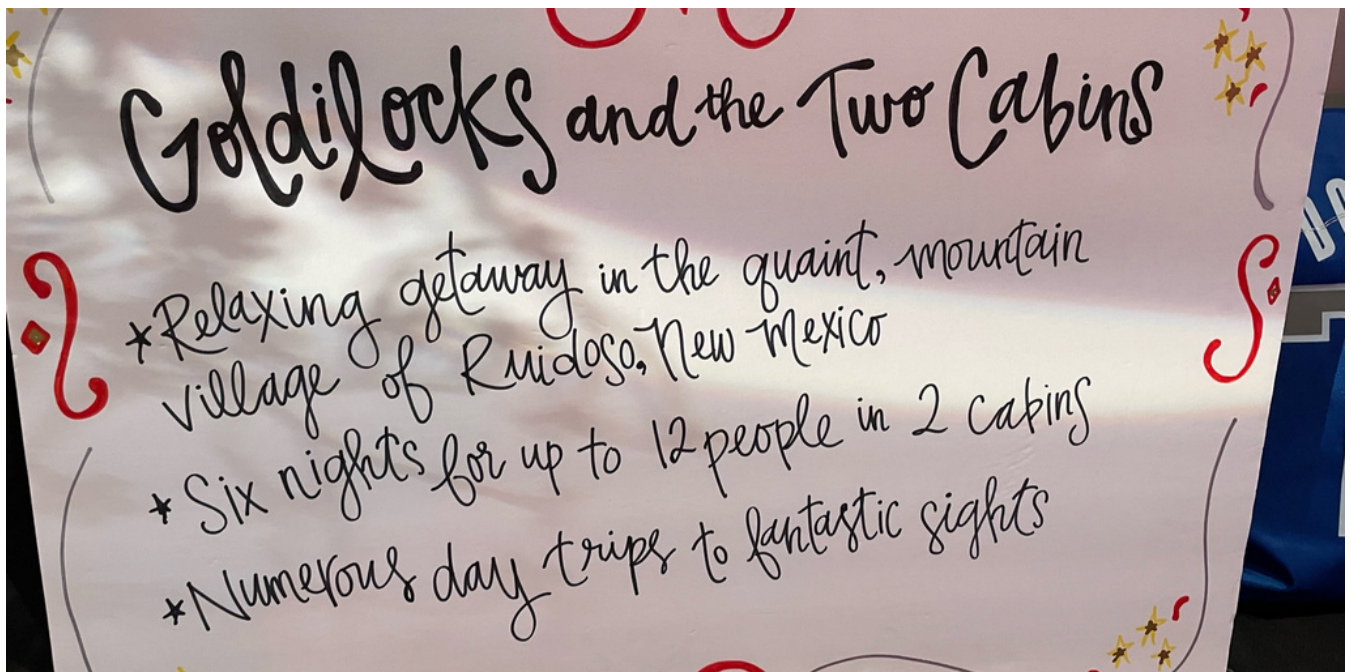 Goldilocks and the Two Cabins
*Relaxing getaway in the quaint, mountain
village of Ruidoso, New Mexico
*Six nights for up to 12 people in 2 cabins
*Numerous day trips to fantastic sights